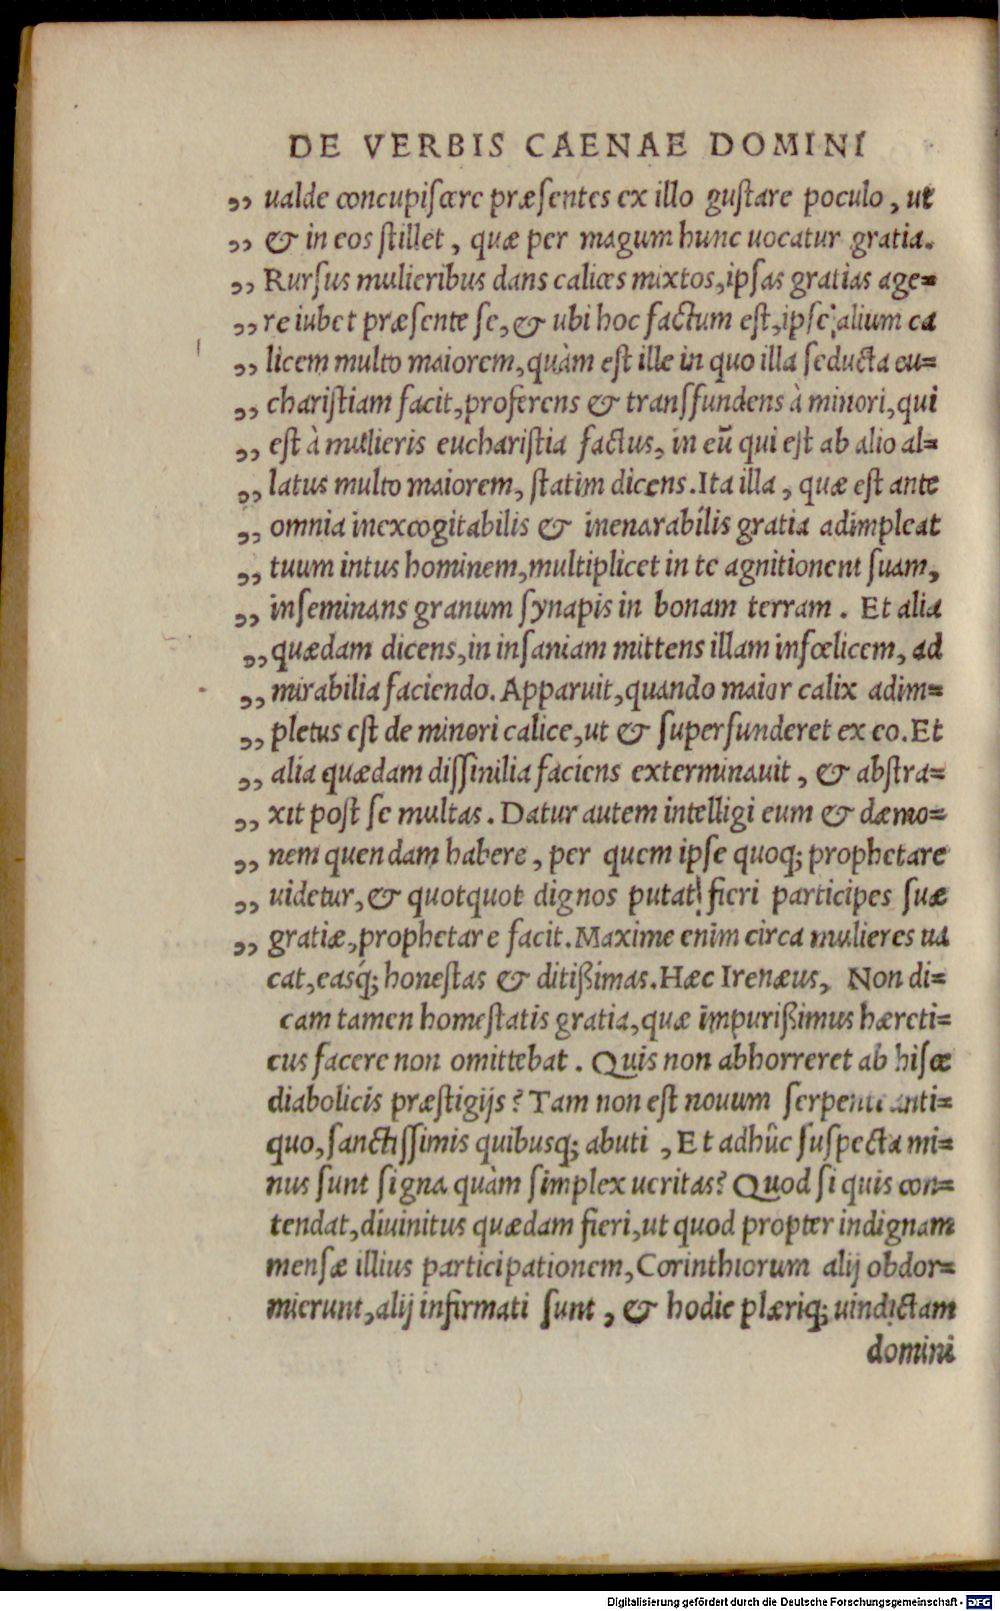 DE VERBIS CAENAE DOMINI
„ ualde concupiſcere præſentes ex illo guſtare poculo, ut
„ & in eos ſtillet, quæ per magum hunc uocatur gratia.
„ Rurſus mulieribus dans calices mixtos, ipſas gratias age=
„ re iubet præſente ſe, & ubi hoc factum eſt, ipſe alium ca
„ licem multo maiorem, quàm eſt ille in quo illa ſeducta eu=
„ chariſtiam facit, proferens & transfundens à minori, qui
„ eſt à mulieris euchariſtia factus, in eū qui eſt ab alio al=
„ latus multo maiorem, ſtatim dicens. Ita illa, quæ eſt ante
„ omnia inexcogitabilis & inenarabilis gratia adimpleat
„ tuum intus hominem, multiplicet in te agnitionem ſuam,
„ inſeminans granum ſynapis in bonam terram. Et alia
„ quædam dicens, in inſaniam mittens illam infœlicem, ad
„ mirabilia faciendo. Apparuit, quando maior calix adim=
„ pletus eſt de minori calice, ut & ſuperfunderet ex eo. Et
„ alia quædam diſſinilia faciens exterminauit, & abſtra=
„ xit poſt ſe multas. Datur autem intelligi eum & dæmo=
„ nem quendam habere, per quem ipſe quoq; prophetare
„ uidetur, & quotquot dignos putat fieri participes ſuæ
„ gratiæ, prophetare facit. Maxime enim circa mulieres ua
cat, easq́; honeſtas & ditißimas. Hæc Irenæus, Non di=
cam tamen homeſtatis gratia, quæ impurißimus hæreti=
cus facere non omittebat. Quis non abhorreret ab hiſce
diabolicis præſtigijs? Tam non eſt nouum ſerpenti anti=
quo, ſanctiſſimis quibusq; abuti, Et adhûc ſuſpecta mi=
nus ſunt ſigna quàm ſimplex ueritas? Quod ſi quis con=
tendat, diuinitus quædam fieri, ut quod propter indignam
menſæ illius participationem, Corinthiorum alij obdor=
mierunt, alij infirmati ſunt, & hodie plæriq; uindictam
domini
Digitalisierung gefördert durch die Deutsche Forschungsgemeinschaft - DFG